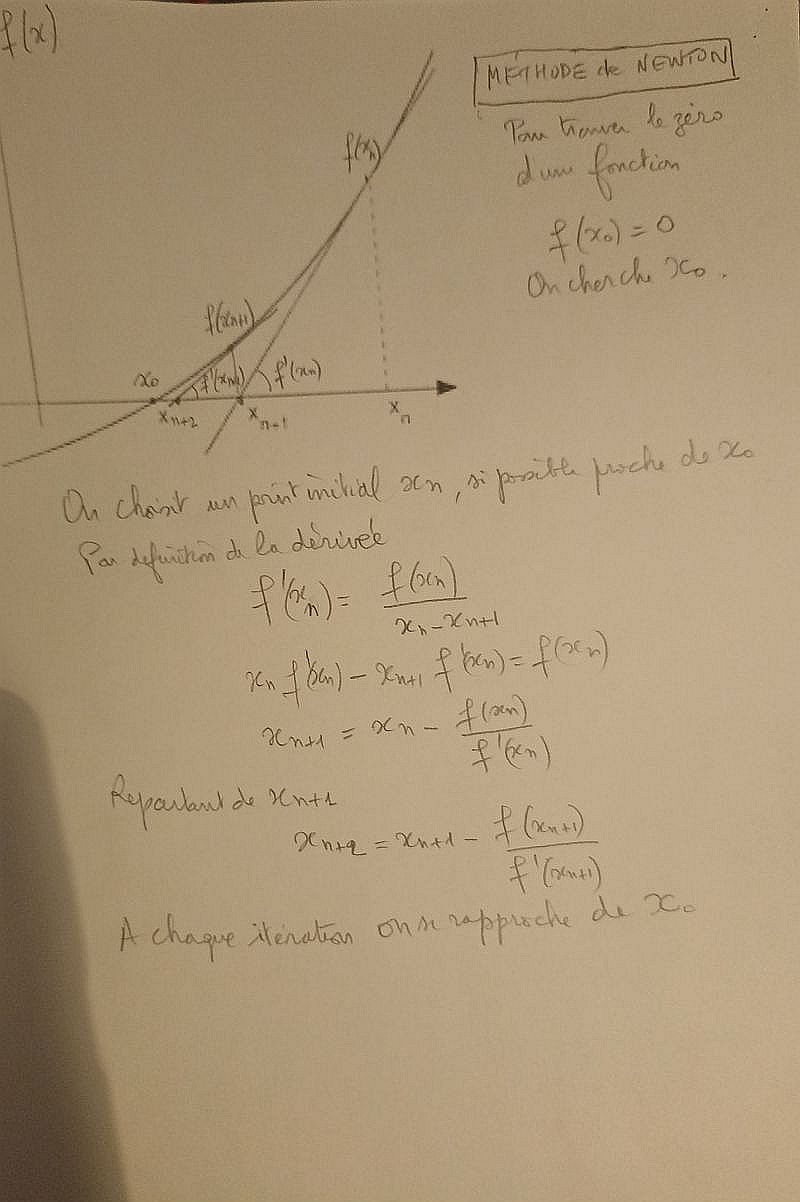 f(x)
MÉTHODE de NEWTON
Pour trouver le zéro
d'une fonction
f(x₀) = 0
On cherche x₀.
f(xₙ)
f(xₙ₊₁)
x₀
f'(xₙ₊₁)
f'(xₙ)
xₙ₊₂
xₙ₊₁
xₙ
On choisit un point initial xₙ, si possible proche de x₀
Par definition de la dérivée
f'(xₙ) = f(xₙ) / (xₙ - xₙ₊₁)
xₙ f'(xₙ) - xₙ₊₁ f'(xₙ) = f(xₙ)
xₙ₊₁ = xₙ - f(xₙ) / f'(xₙ)
Repartant de xₙ₊₁
xₙ₊₂ = xₙ₊₁ - f(xₙ₊₁) / f'(xₙ₊₁)
A chaque itération on se rapproche de x₀